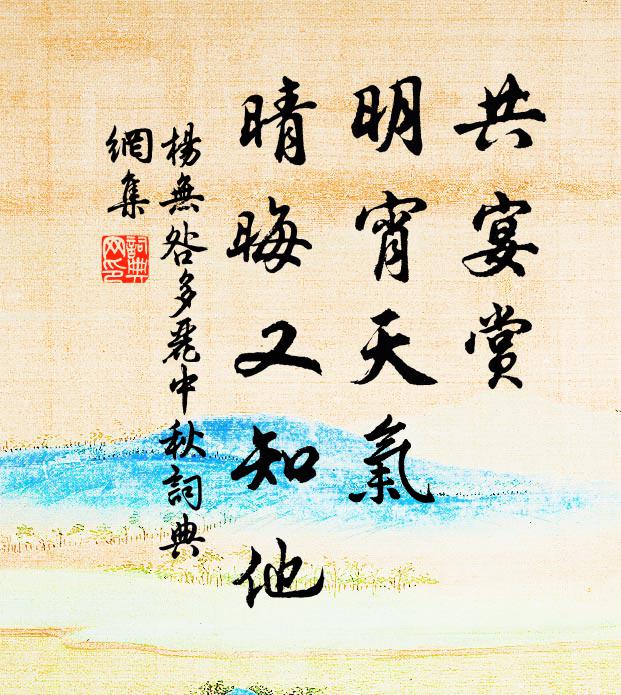 共宴赏
明宵天氣
晴晦又知他
楊無咎多麗中秋詞典
網集
詞典
网印